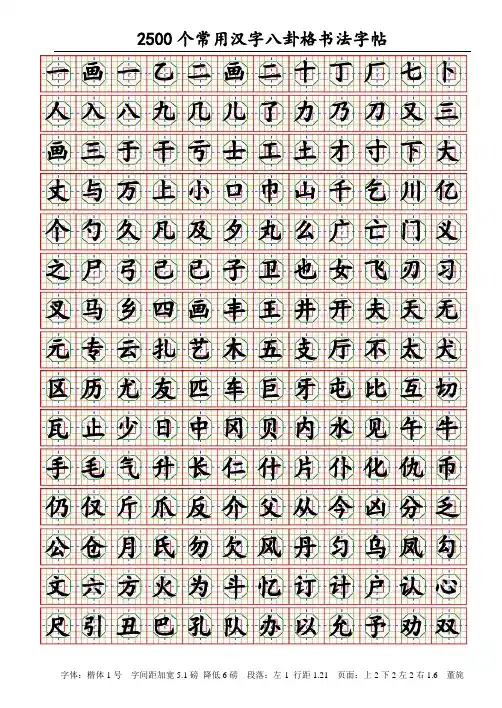 2500个常用汉字八卦格书法字帖
一画一乙二画二十丁厂七卜
人入八九几儿了力乃刀又三
画三于干亏士工土才寸下大
丈与万上小口巾山千乞川亿
个勺久凡及夕丸么广亡门义
之尸弓己已子卫也女飞刃习
叉马乡四画丰王井开夫天无
元专云扎艺木五支厅不太犬
区历尤友匹车巨牙屯比互切
瓦止少日中冈贝内水见午牛
手毛气升长仁什片仆化仇币
仍仅斤爪反介父从今凶分乏
公仓月氏勿欠风丹匀乌凤勾
文六方火为斗忆订计户认心
尺引丑巴孔队办以允予劝双
字体：楷体1号 字间距加宽5.1磅 降低6磅 段落：左1 行距1.21 页面：上2下2左2右1.6 董旄